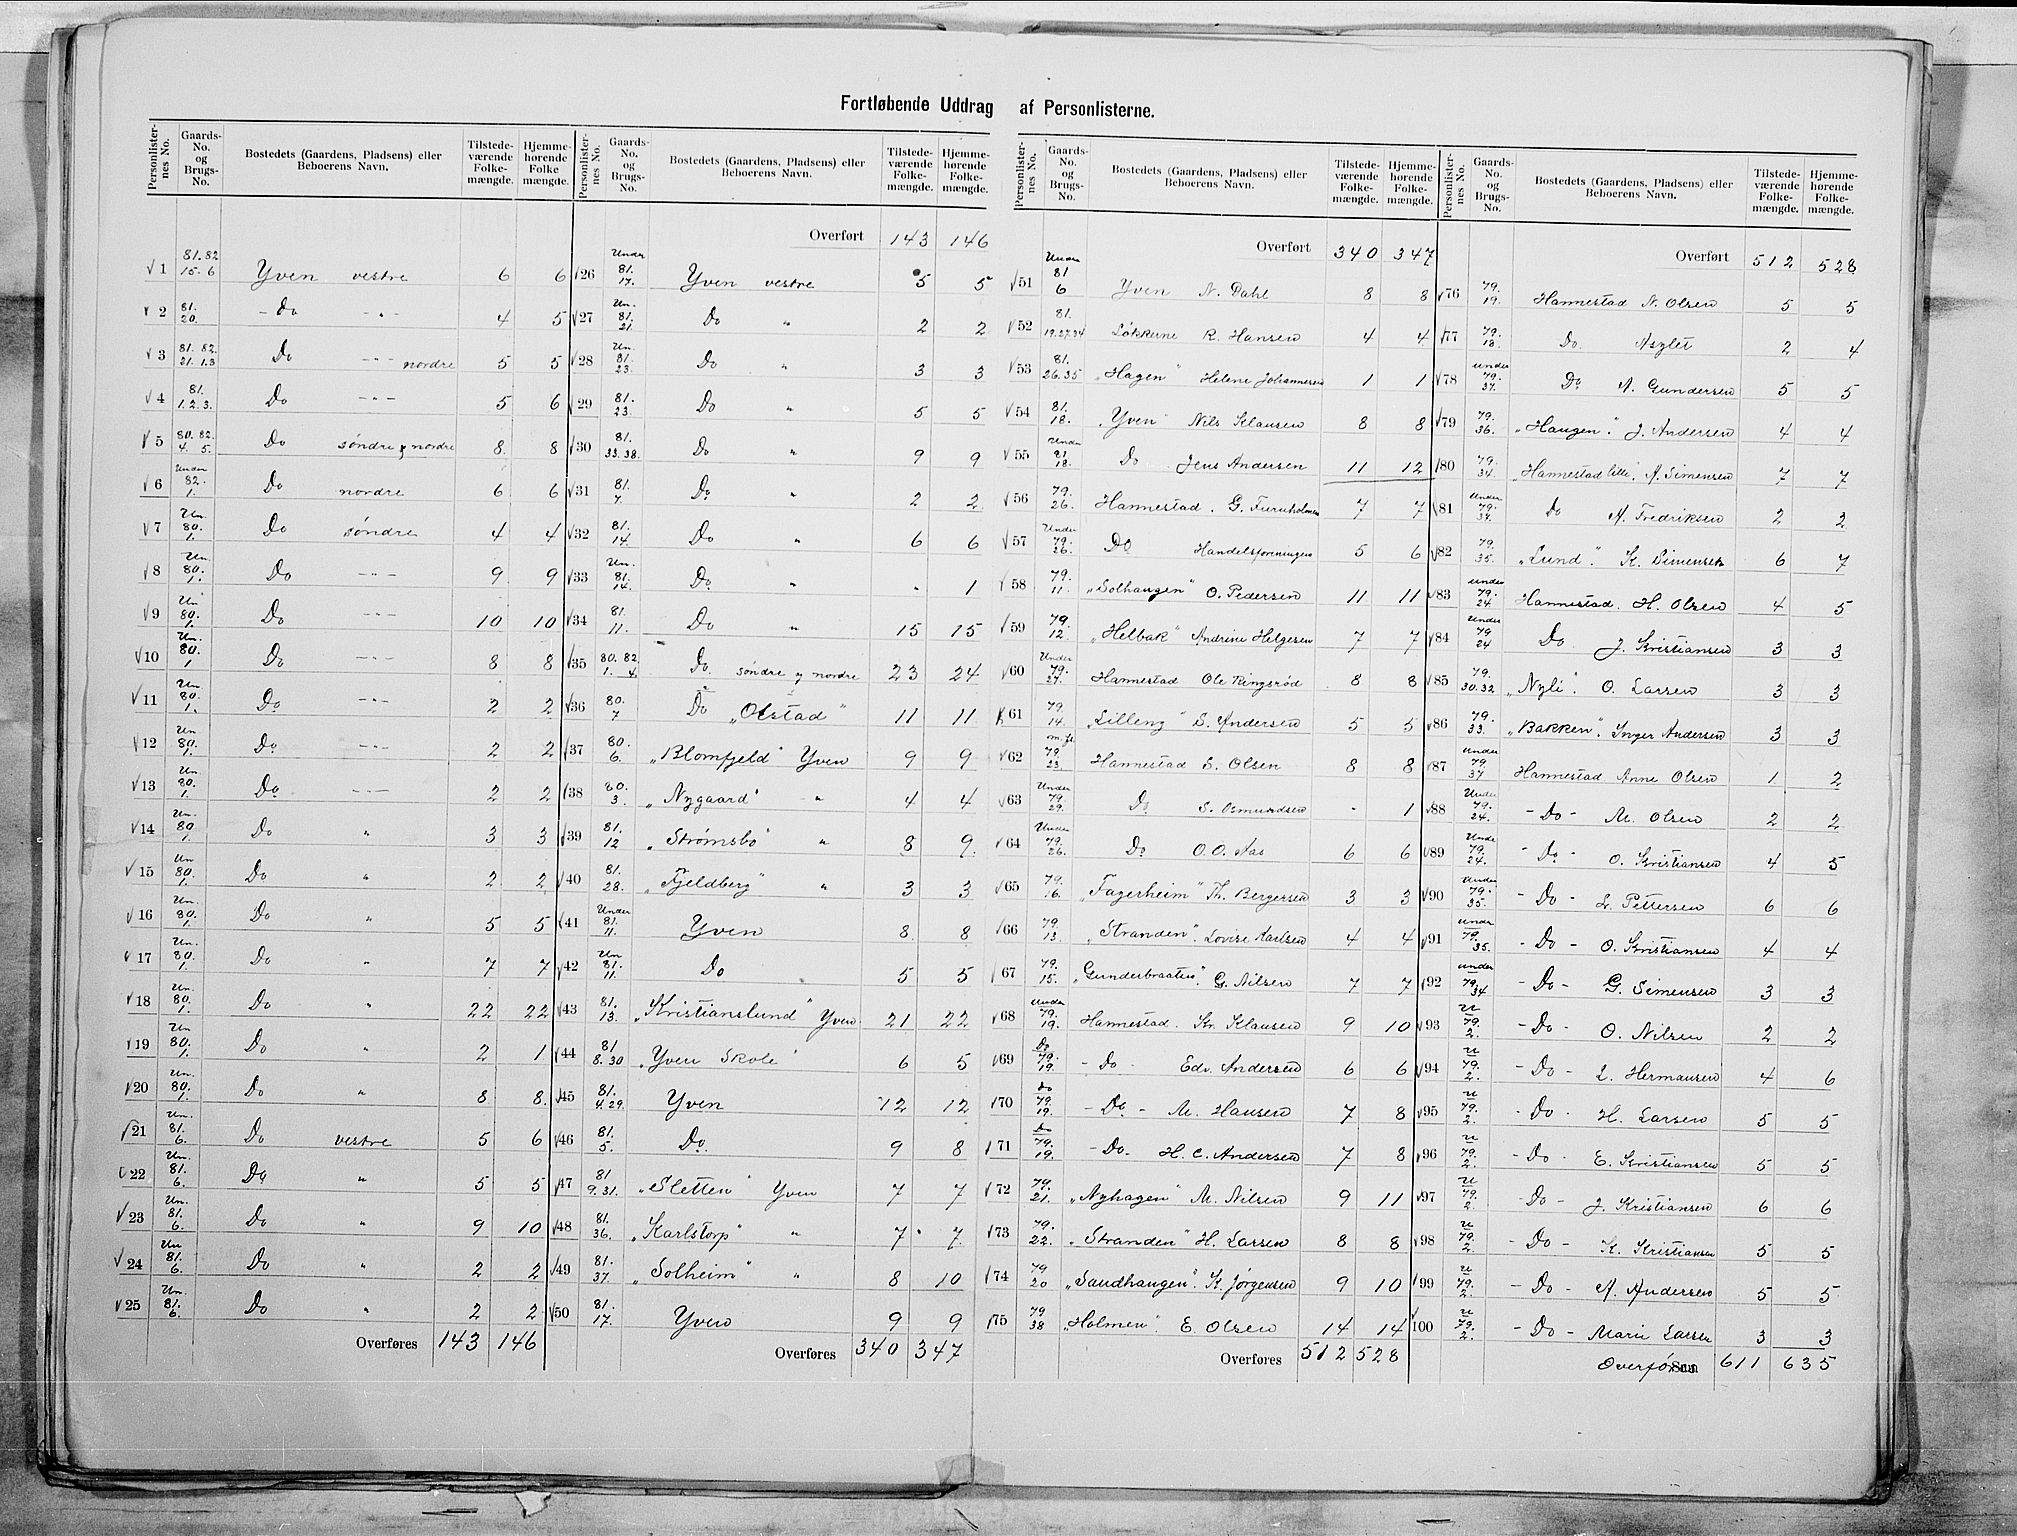 Fortløbende Uddrag af Personlisterne.
Personlister-nes No. | Gaards-No. og Brugs-No. | Bostedets (Gaardens, Pladsens) eller Beboerens Navn. | Tilstede-værende Folke-mængde. | Hjemme-hørende Folke-mængde.
1 | 81. 82 15. 6 | Yven vestre | 6 | 6
2 | 81. 20. | - Do - " - | 4 | 5
3 | 81. 82. 21. 1.3 | Do - " - nordre | 5 | 5
4 | 81. 1. 2. 3. | Do - " - | 5 | 6
5 | 80. 82. 4. 5. | Do søndre & nordre | 8 | 8
6 | Under 82. 1. | Do nordre | 6 | 6
7 | Un. 80. 1. | Do søndre | 4 | 4
8 | Un 80. 1. | Do - " - | 9 | 9
9 | Un 80. 1. | Do - " - | 10 | 10
10 | Un. 80. 1 | Do - " - | 8 | 8
11 | Un 80. 1. | Do - " - | 2 | 2
12 | Un 80. 1. | Do - " - | 2 | 2
13 | Un 80. 1. | Do - " - | 2 | 2
14 | Un. 80 1. | Do " | 3 | 3
15 | Un 80. 1. | Do " | 2 | 2
16 | Un 80. 1. | Do " | 5 | 5
17 | Un. 80. 1. | Do " | 7 | 7
18 | Un. 80. 1. | Do " | 22 | 22
19 | Un 80. 1. | Do " | 2 | 1
20 | Un. 80. 1. | Do " | 8 | 8
21 | Un. 81. 6. | Do vestre | 5 | 6
22 | Un. 81. 6. | Do " | 5 | 5
23 | Un. 81. 6. | Do " | 9 | 10
24 | Un 81. 6. | Do " | 2 | 2
25 | Un. 81. 6. | Do " | 2 | 2
Overføres 143 146
Personlister-nes No. | Gaards-No. og Brugs-No. | Bostedets (Gaardens, Pladsens) eller Beboerens Navn. | Tilstede-værende Folke-mængde. | Hjemme-hørende Folke-mængde.
Overført 143 146
26 | Under 81. 17. | Yven vestre | 5 | 5
27 | Un. 81. 21. | Do " | 2 | 2
28 | Un. 81. 23. | Do " | 3 | 3
29 | 81. 23. | Do " | 5 | 5
30 | 81. 33. 38. | Do " | 9 | 9
31 | 81. 7. | Do " | 2 | 2
32 | 81. 14. | Do " | 6 | 6
33 | Un. 81. 14. | Do " | - | 1
34 | 81. 11. | Do " | 15 | 15
35 | 80. 82. 1. 4. | Do søndre & nordre | 23 | 24
36 | 80. 7 | Do "Olstad" | 11 | 11
37 | 80. 6. | "Blomfjeld" Yven | 9 | 9
38 | 80. 3. | "Nygaard" - " | 4 | 4
39 | 81. 12 | "Strømsbo" " | 8 | 9
40 | 81. 28. | "Fjeldberg" " | 3 | 3
41 | Under 81. 11. | Yven | 8 | 8
42 | Un 81. 11. | Do | 5 | 5
43 | 81. 13. | "Kristianslund" Yven | 21 | 22
44 | 81 8. 30 | "Yven Skole" | 6 | 5
45 | 81. 4. 29. | Yven | 12 | 12
46 | 81. 5. | Do. | 9 | 8
47 | 81 9. 31. | "Sletten" Yven | 7 | 7
48 | 81. 36. | "Karlstorp" " | 7 | 7
49 | 81. 37. | "Solheim" " | 8 | 10
50 | 81. 17. | Yven | 9 | 9
Overføres 340 347
Personlister-nes No. | Gaards-No. og Brugs-No. | Bostedets (Gaardens, Pladsens) eller Beboerens Navn. | Tilstede-værende Folke-mængde. | Hjemme-hørende Folke-mængde.
Overført 340 347
51 | Under 81 6 | Yven N. Dahl | 8 | 8
52 | 81. 19. 27. 34 | Løkkerne R. Hansen | 4 | 4
53 | 81. 26. 35 | "Hagen" Helene Johannesen | 1 | 1
54 | 81. 18. | "Yven" Nils Klausen | 8 | 8
55 | Under 81 18. | Do Jens Andersen | 11 | 12
56 | 79. 26. | Hannestad. G. Furuholmen | 7 | 7
57 | Under 79. 26. | Do Handelsforeningen | 5 | 6
58 | 79. 11. | "Solhaugen" O. Pedersen | 11 | 11
59 | 79. 12. | "Helbak" Andrine Helgesen | 7 | 7
60 | Under 79. 27. | Hannestad Ole Ringsrød | 8 | 8
61 | 79. 14. | "Lilleng" S. Andersen | 5 | 5
62 | m. fl. 79 23. | Hannestad S. Olsen | 8 | 8
63 | Under 79. 29. | Do S. Osmundsen | - | 1
64 | Under 79. 26. | Do O. O. Aas | 6 | 6
65 | 79. 16. | "Fagerheim" Th. Bergersen | 3 | 3
66 | 79. 13. | "Stranden". Lovise Karlsen | 4 | 4
67 | 79. 15. | "Gunderbraaten". G. Nilsen | 7 | 7
68 | Under 79. 19. | Hannestad. Kr. Klausen | 9 | 10
69 | Do 79. 19. | - Do - Edv. Andersen | 6 | 6
70 | Do 79. 19. | - Do - M. Hansen | 7 | 8
71 | Do 79. 19. | - Do - H. C. Andersen | 7 | 8
72 | 79. 21. | "Nyhagen" M. Nilsen | 9 | 11
73 | 79. 22. | "Stranden" H. Larsen | 8 | 8
74 | 79 20 | "Sandhaugen". K. Jørgensen | 9 | 10
75 | 79 38 | "Holmen" E. Olsen | 14 | 14
Overføres 512 528
Personlister-nes No. | Gaards-No. og Brugs-No. | Bostedets (Gaardens, Pladsens) eller Beboerens Navn. | Tilstede-værende Folke-mængde. | Hjemme-hørende Folke-mængde.
Overført 512 528
76 | 79. 19. | Hannestad N. Olsen | 5 | 5
77 | 79. 18. | Do. Asylet | 2 | 4
78 | under 79. 37. | Do A. Gundersen | 5 | 5
79 | 79. 36. | "Haugen". J. Andersen | 4 | 4
80 | 79. 34. | "Hannestad lille". A. Simensen | 7 | 7
81 | Under 79. 34. | Do A. Fredriksen | 2 | 2
82 | 79. 35. | "Lund". K. Simensen | 6 | 7
83 | under 79. 24 | Hannestad. H. Olsen | 4 | 5
84 | Under 79 24 | Do J. Kristiansen | 3 | 3
85 | 79. 30. 32 | "Nyli". O. Larsen | 3 | 3
86 | 79. 33. | "Bakken". Inger Andersen | 3 | 3
87 | under 79 37 | Hannestad Anne Olsen | 1 | 2
88 | Under 79. 24. | - Do - M. Olsen | 2 | 2
89 | Unde 79. 24. | - Do - O. Kristiansen | 4 | 5
90 | Under 79. 35. | - Do - L. Pettersen | 6 | 6
91 | under 79. 35. | - Do - O. Kristiansen | 4 | 4
92 | under 79. 34 | - Do - G. Simensen | 3 | 3
93 | U 79. 2. | - Do - O. Nilsen | 2 | 2
94 | U 79. 2. | - Do - L. Hermansen | 4 | 6
95 | U 79. 2. | - Do - H. Larsen | 5 | 5
96 | U 79. 2. | - Do - E. Kristiansen | 5 | 5
97 | U 79. 2. | - Do - J. Kristiansen | 6 | 6
98 | U 79. 2. | - Do - K. Kristiansen | 5 | 5
99 | U 79. 2. | - Do - A. Andersen | 5 | 5
100 | U 79. 2. | - Do - Marie Larsen | 3 | 3
Overføres 611 635